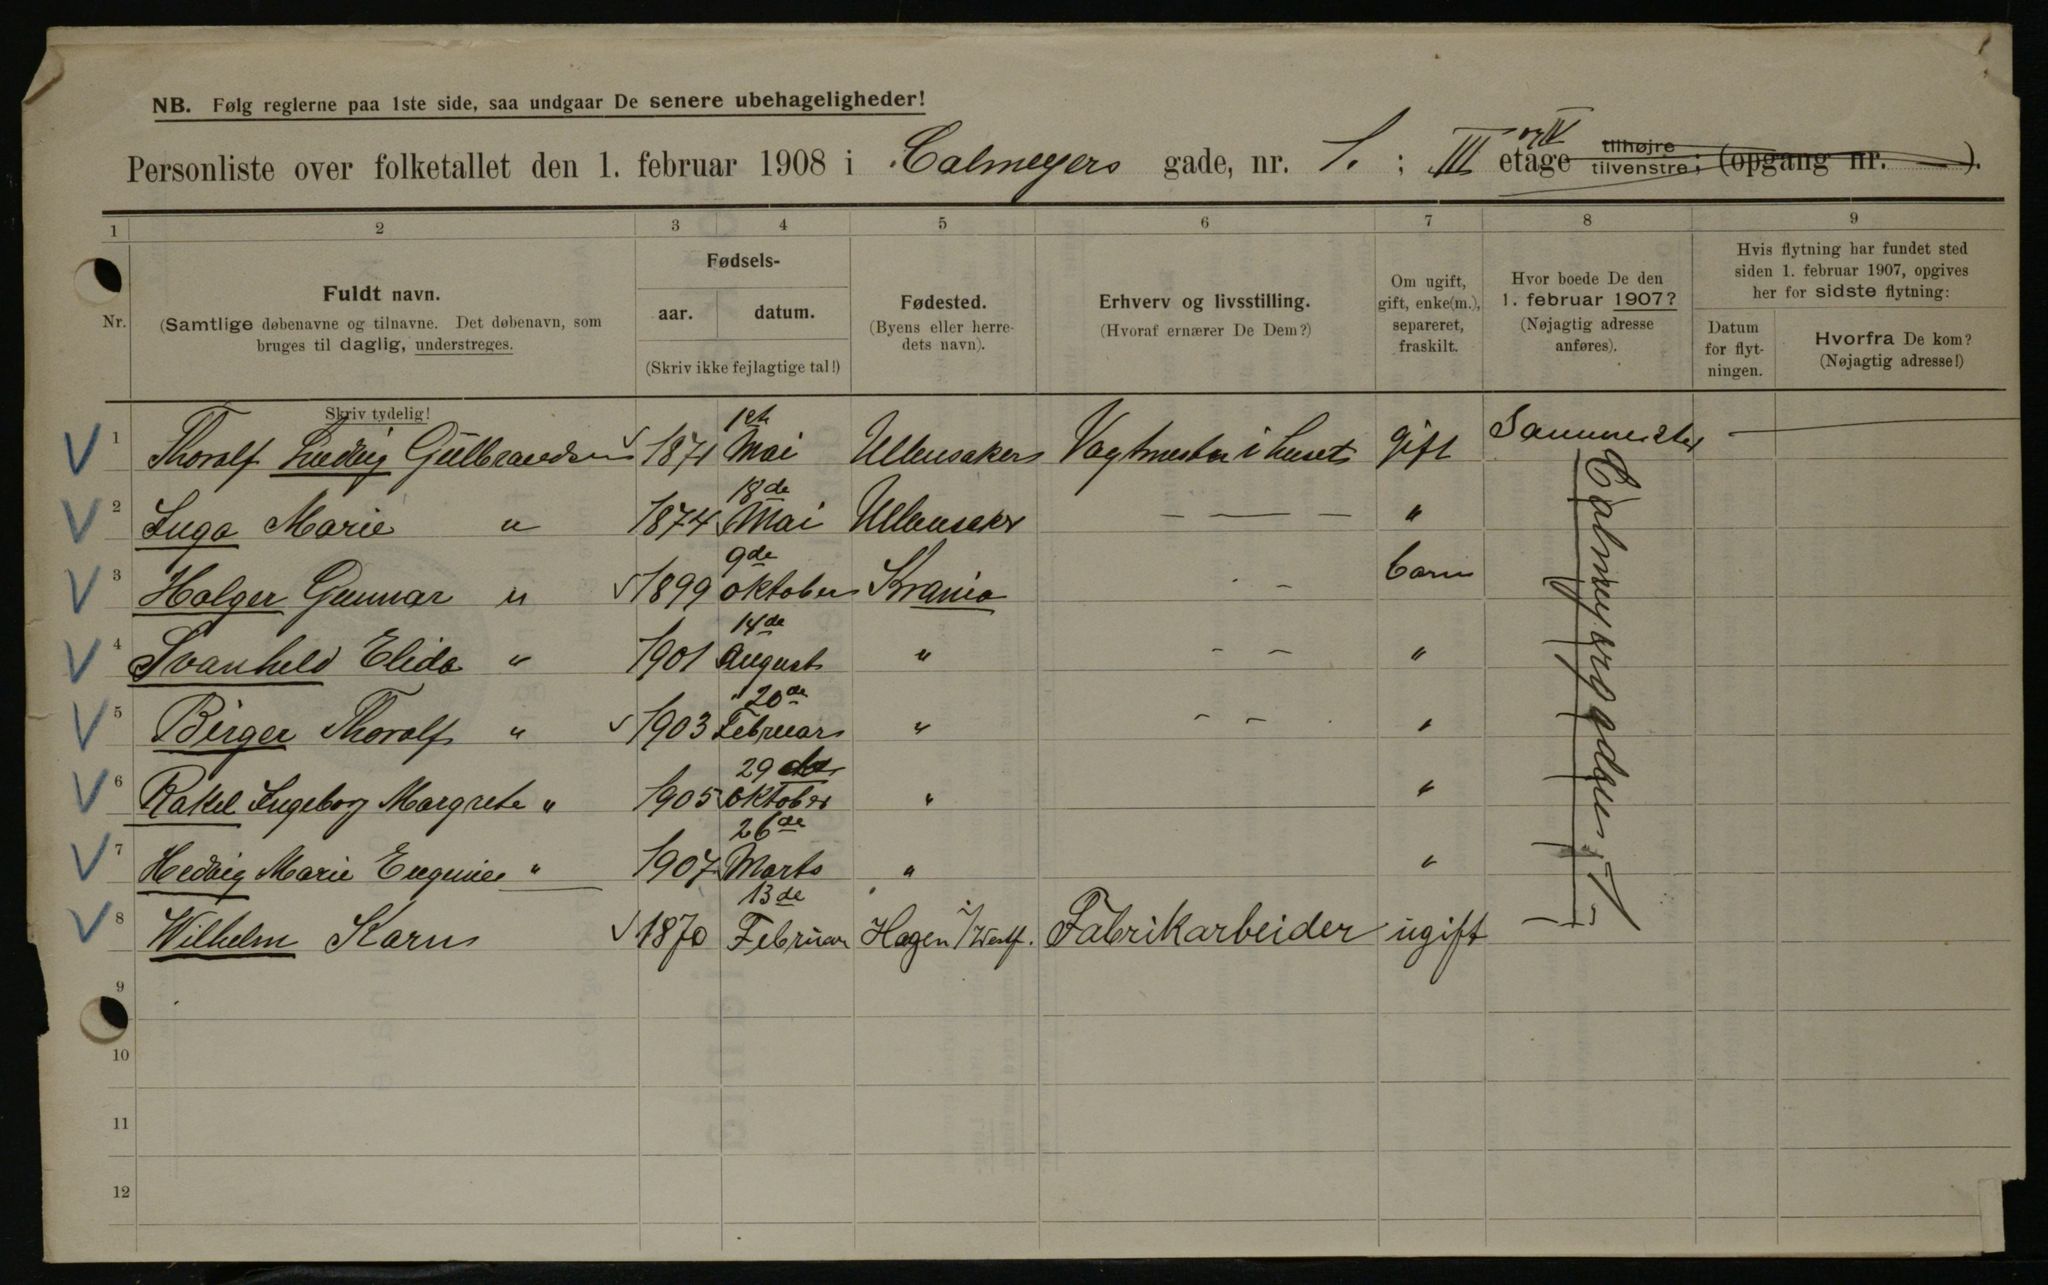 NB. Følg reglerne paa 1ste side, saa undgaar De senere ubehageligheder!
Personliste over folketallet den 1. februar 1908 i Calmeyers gade, nr. 1. ; III og IV etage tilhøjre tilvenstre; (opgang nr. ).
1 2 3 4 5 6 7 8 9
Nr. Fuldt navn. (Samtlige døbenavne og tilnavne. Det døbenavn, som bruges til daglig, understreges.
Fødsels- aar. datum. (Skriv ikke fejlagtige tal!)
Fødested. (Byens eller herredets navn).
Erhverv og livsstilling. (Hvoraf ernærer De Dem?)
Om ugift, gift, enke(m.), separeret, fraskilt.
Hvor boede De den 1. februar 1907? (Nøjagtig adresse anføres).
Hvis flytning har fundet sted siden 1. februar 1907, opgives her for sidste flytning:
Datum for flytningen. Hvorfra De kom? (Nøjagtig adresse!)
Skriv tydelig!
1 Thoralf Ludvig Gulbrandsen 1871 1ste Mai Ullensakers Vagtmester i huset gift Sammested —
2 Inga Marie " 1874 18de Mai Ullensaker — — — "
3 Holger Gunnar " 1899 9de oktober Krania - - barn
4 Svanheld Elida " 1901 14de August " - - "
5 Birger Thoralf " 1903 20de Februar " - - "
6 Rakel Ingeborg Margrete " 1905 29de oktober " "
7 Hedvig Marie Eugenie " 1907 26de Marts " "
8 Wilhelm Karn 1870 13de Februar Hagen i/Westf. Fabrikarbeider ugift —
Calmeyersgaden 1
9
10
11
12